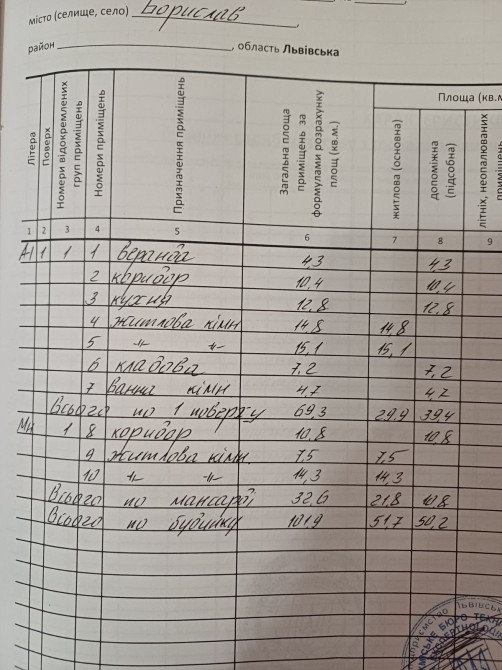 місто (селище, село) Борислав
район , область Львівська
Літера
Поверх
Номери відокремлених груп приміщень
Номери приміщень
Призначення приміщень
Загальна площа приміщень за формулами розрахунку площ (кв.м.)
Площа (кв.м
житлова (основна)
допоміжна (підсобна)
літніх, неопалюваних
1 2 3 4 5 6 7 8 9
А1 1 1 1 веранда 4,3 4,3
2 коридор 10,4 10,4
3 кухня 12,8 12,8
4 житлова кімн 14,8 14,8
5 -//- -//- 15,1 15,1
6 кладова 7,2 7,2
7 ванна кімн 4,7 4,7
Всього по 1 поверху 69,3 29,9 39,4
Мн 1 8 коридор 10,8 10,8
9 житлова кімн. 7,5 7,5
10 -//- -//- 14,3 14,3
Всього по мансарді 32,6 21,8 10,8
Всього по будинку 101,9 51,7 50,2